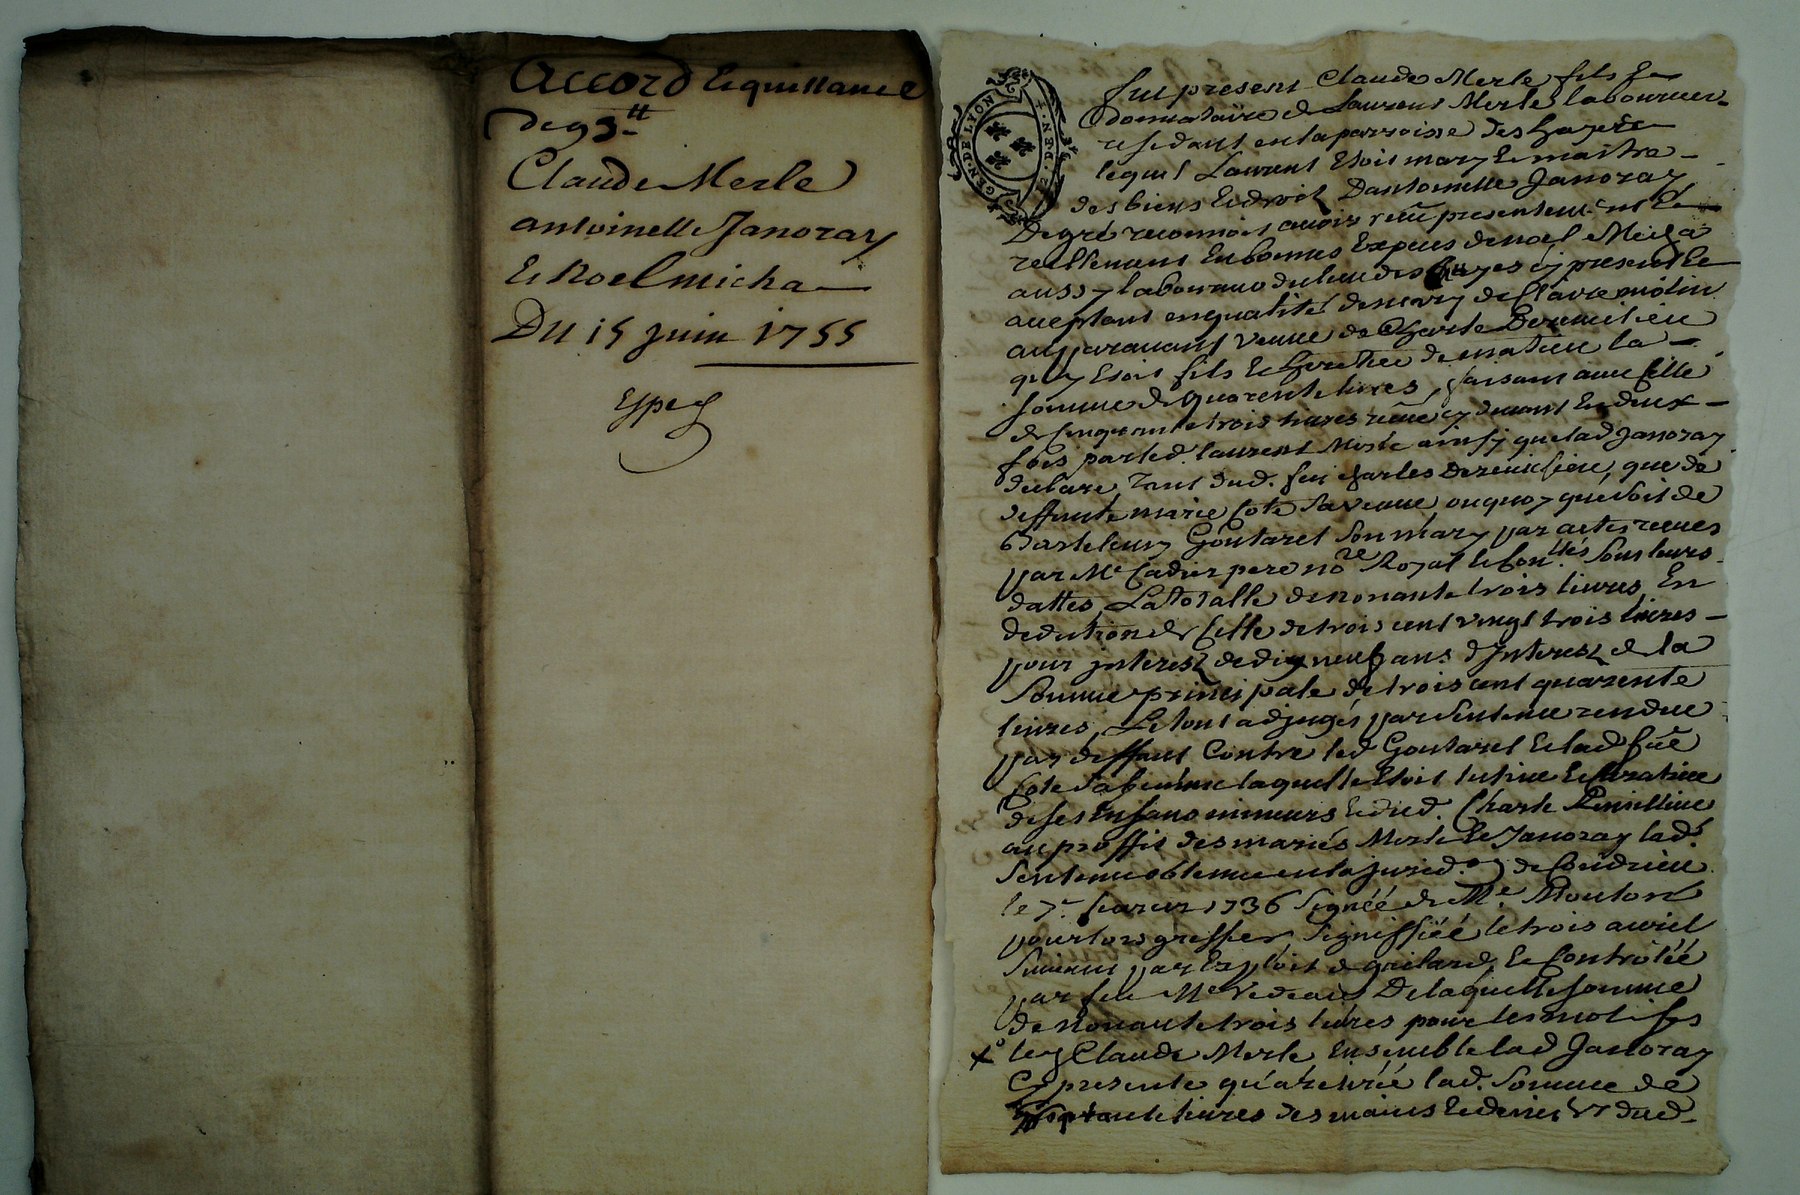 Accord Et quittance
de 93 ℔
Claude Merle
antoinette Janoray
Et Noel micha
Du 15 juin 1755
Expe
GEN·DE·LYON
fut present Claude Merle fils Et
donnataire de Laurens Merle laboureur
residant en la parroisse des hayes
lequel Laurent Estoit mary Et maitre
des biens Et droit Dantoinette Janoray
De gré reconnoit avoir reçu presentement Et
reellement En bonnes Especes de noel Micha
aussy laboureur du lieu des hayes cy present Et
aceptant en qualité de mary de Clavre molin
auparavant veuve de Charle
quy Estoit fils Et heritier de matieu la
somme de quarente livres, faisant avec celle
de cinquante trois livres reçue cy devant En deux
fois par led. laurent Merle ainsy que lad Janoray
declare, Tant dud. feu Charles que de
deffunte marie Cote sa veuve ou quoy que soit de
Barteleumy Goutarel son mary par actes recues
par Me Cadier pere nore Royal Et sous leurs
dattes, La totalle de nonante trois livres, En
deduction de Celle de trois cent vingt trois livres
pour jnterest de dix neuf ans d'Jnterest de la
somme principale de trois cent quarente
livres, Le tout adjugés par sentence rendue
par deffaut Contre led Goutarel Et lad fue
Cote sa femme laquelle Etoit tutrice Et Curatrice
de ses Enfans mineurs Et dud. Charle
au proffit des mariés Merle Et Janoray lad.
sentence obtenue en la jurid.on de Condrieu
le 7e fevrier 1736 signée de Me Mouton
pour lors greffier signiffiée le trois avril
suivant par Exploit de gailard, Et Controlée
par feu Me De laquelle somme
de Nonante trois livres pour les motifs
x led Claude Merle Ensemble lad Janoray
Cy presente qu'a retirée lad. somme de
livres des mains Et denier dud.